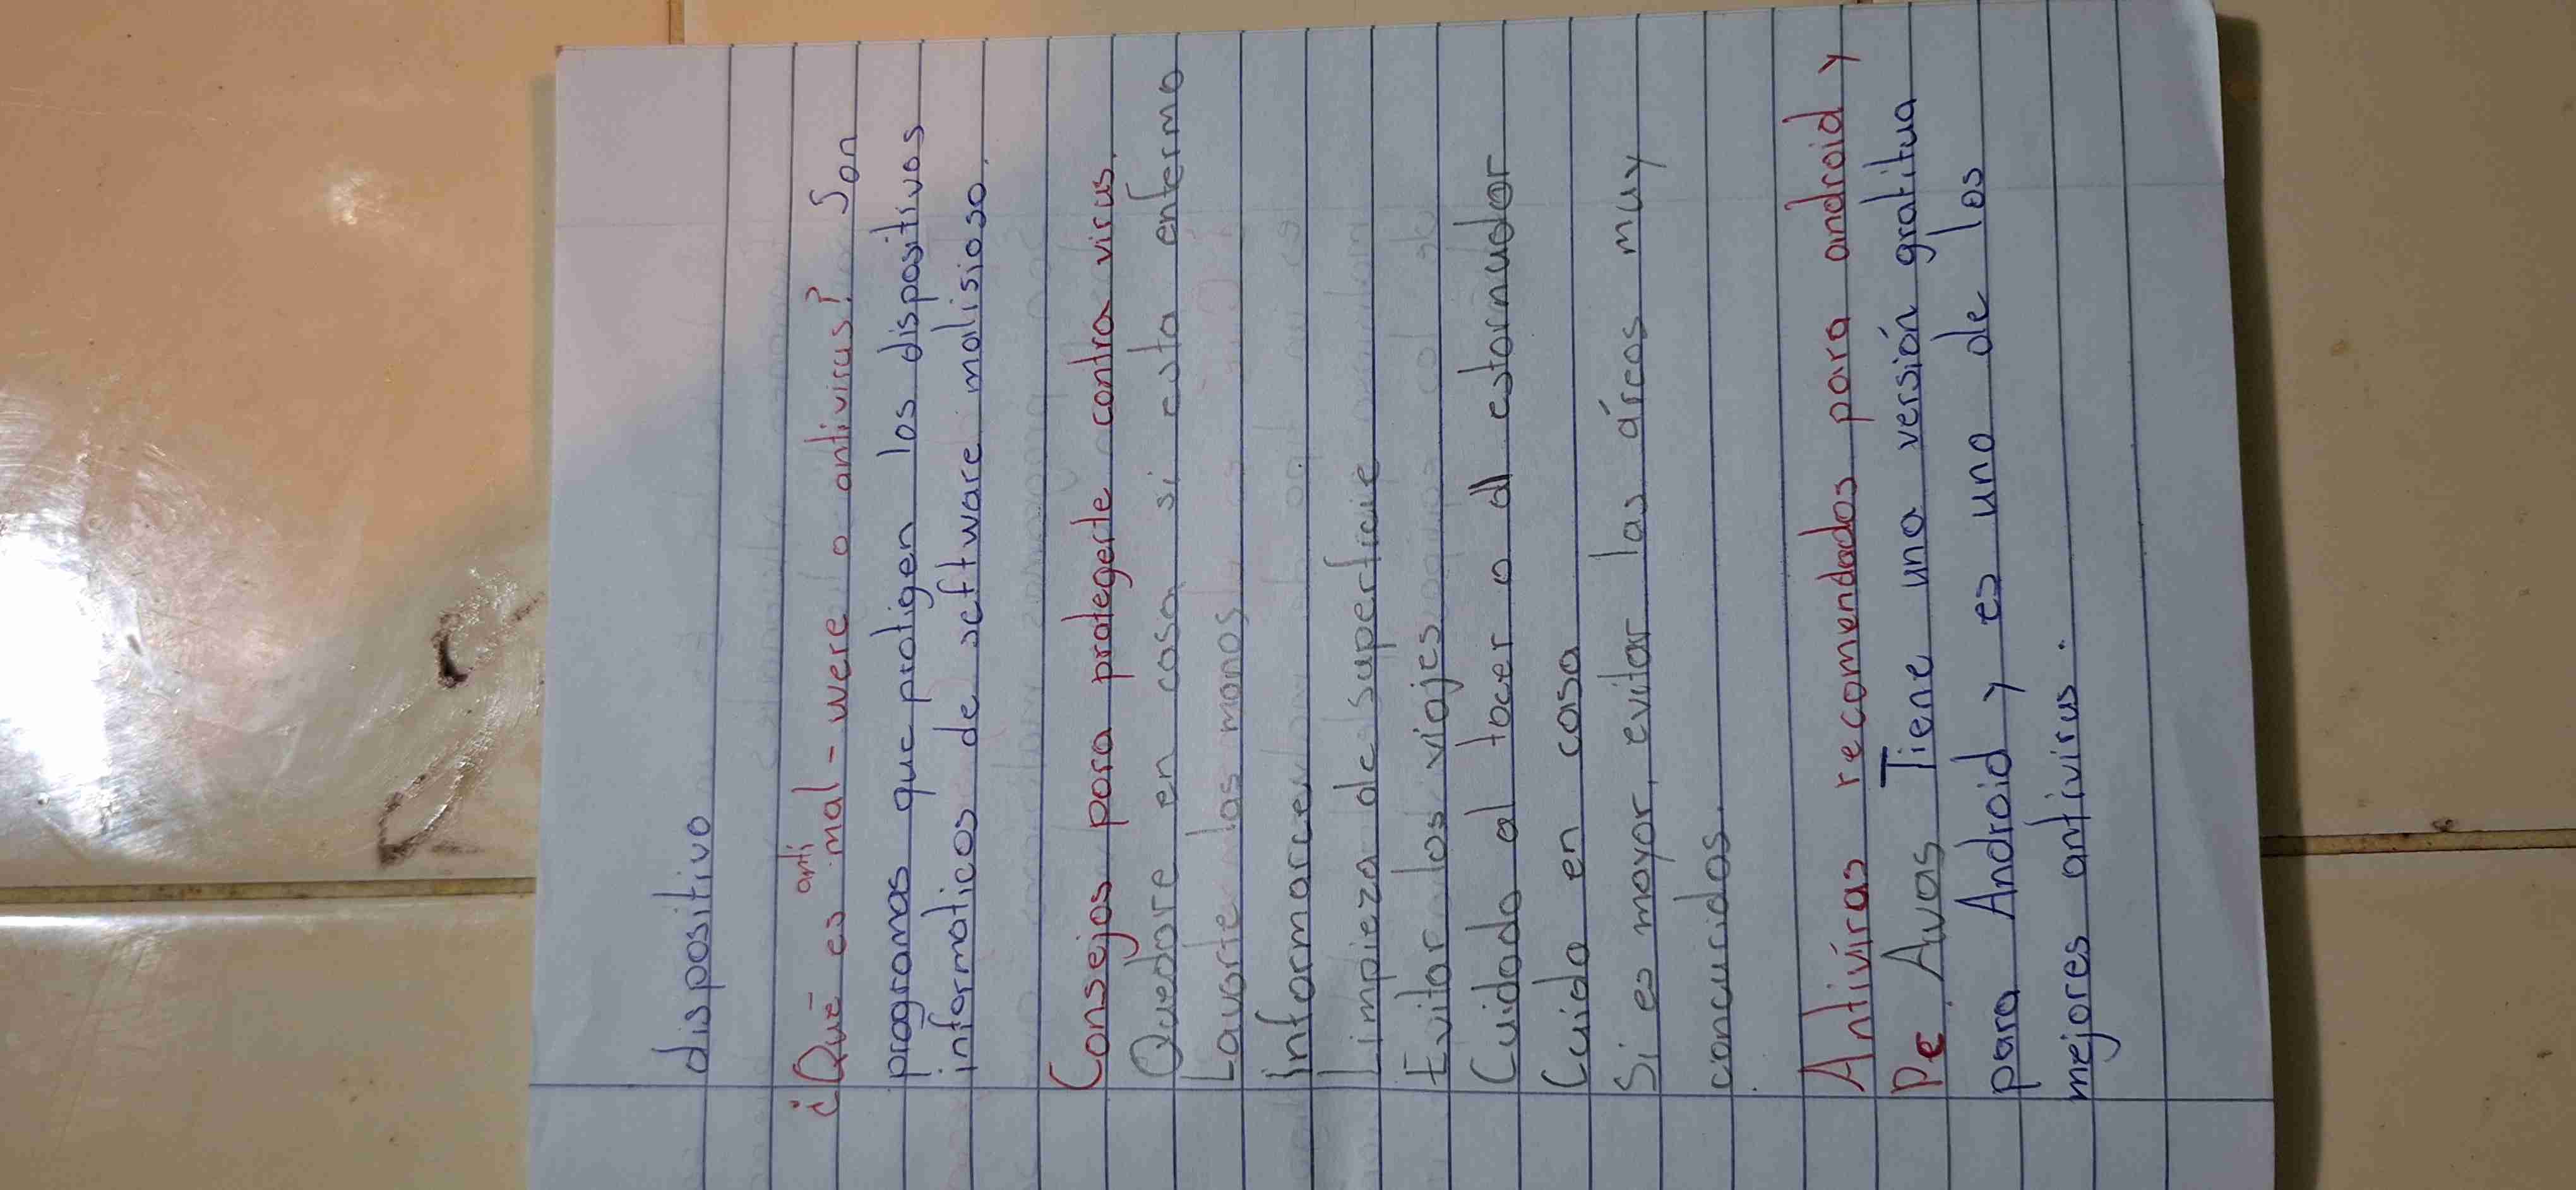 dispositivo
anti
¿Qué es mal-were o antivirus? Son
programas que protigen los dispositivos
informaticos de software malisioso.
Consejos para protegerte contra virus.
Quedare en casa si esta enfermo
Lavarte las manos
informarce
Limpieza de superficie
Evitar los viajes
Cuidado al tocer o al estornudar
Cuida en casa
Si es mayor, evitar las árcas muy
concuridas.
Antivíras recomendados para android y
Pc Avas Tiene una versión gratitua
para Android y es uno de los
mejores antivirus.